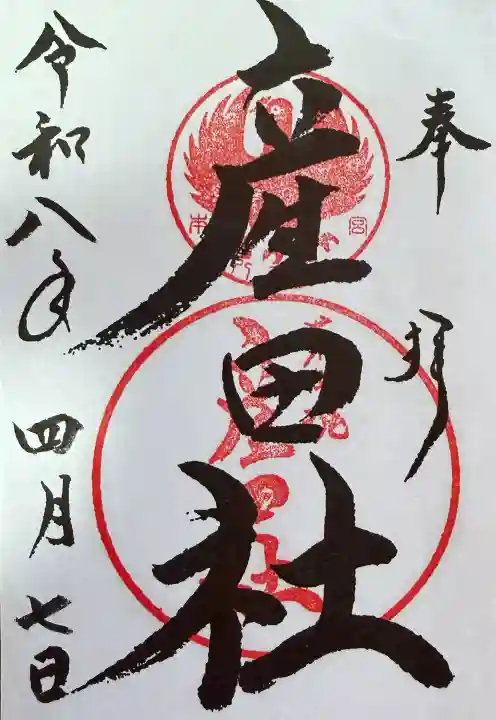 奉拝
産田社
令和八年四月七日